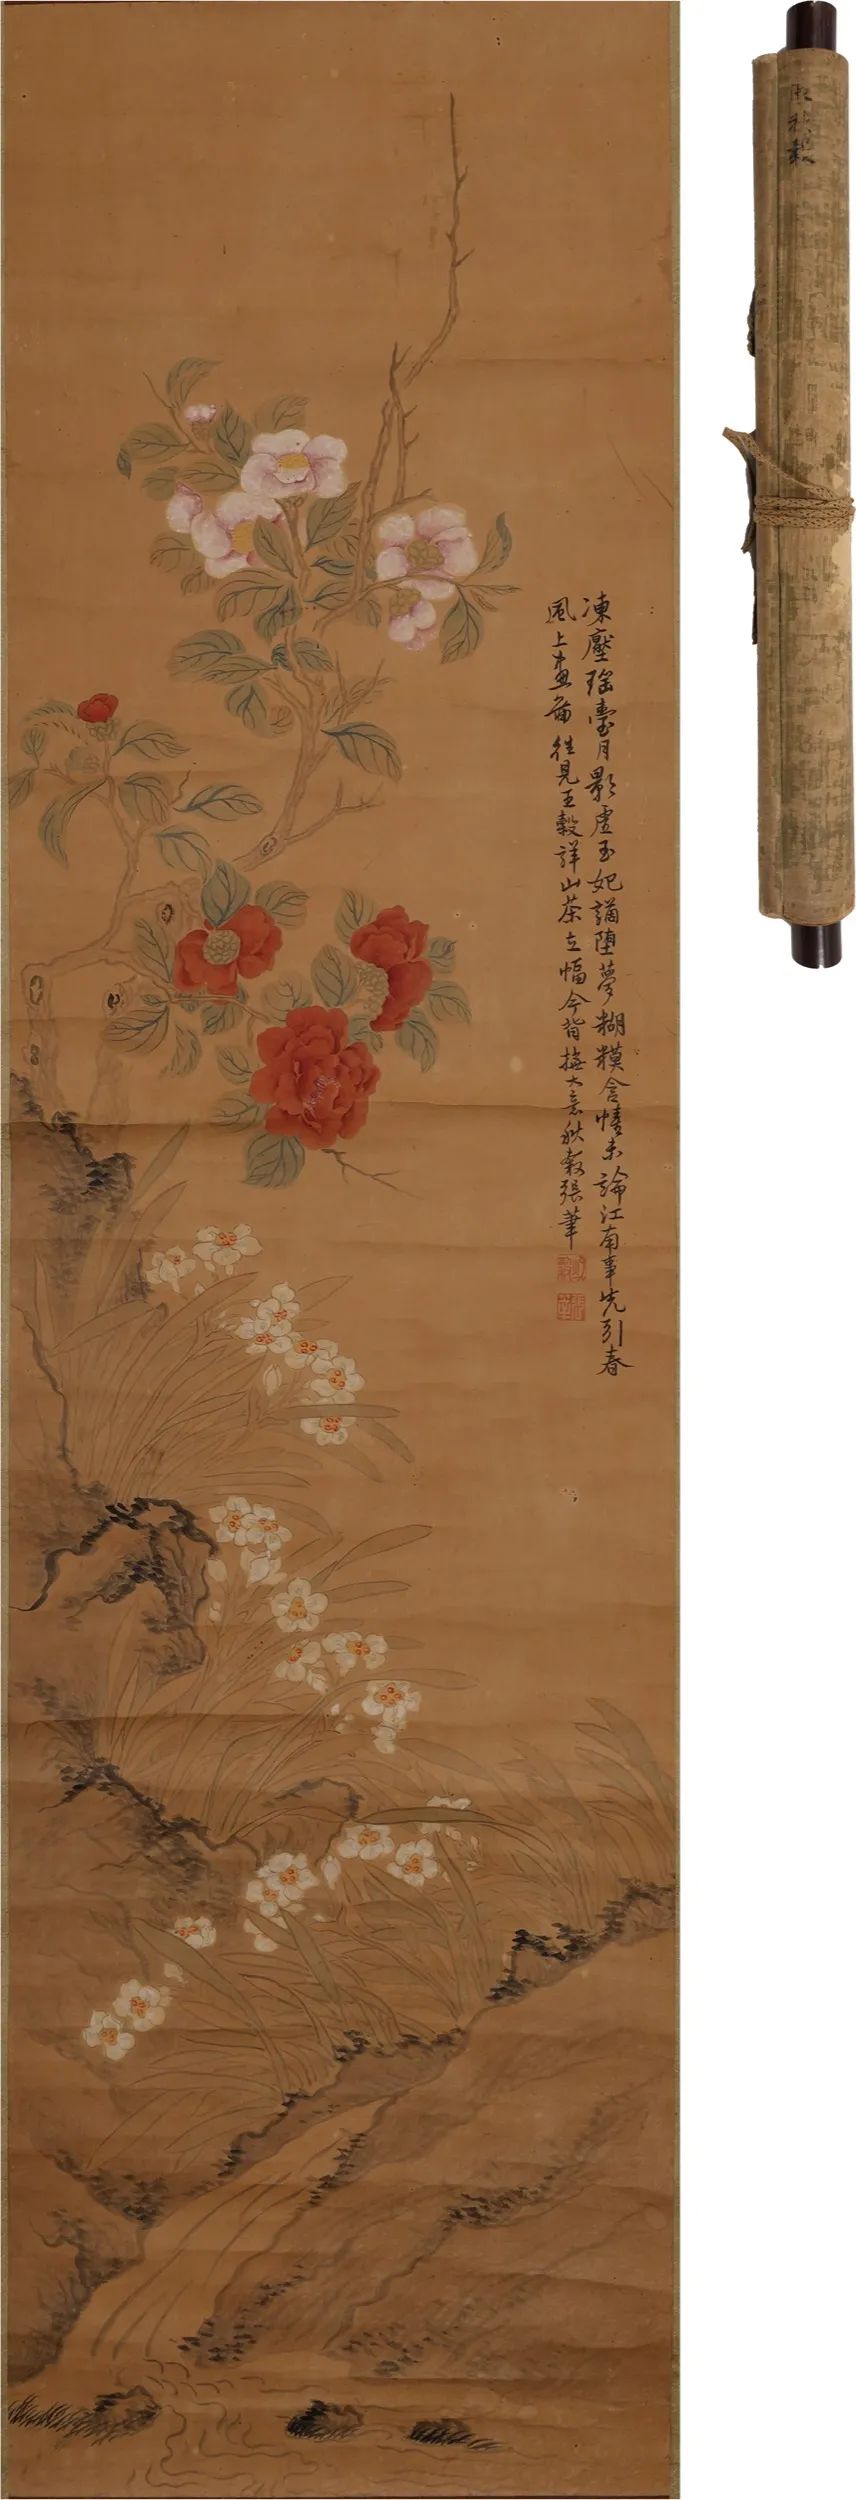 凍壓瑤臺月影虛玉妃謫墮夢糊糢含情未論江南事先引春
風上畫圖 往見王穀詳山茶立幅今背橅大意秋穀張莘
張莘
秋穀